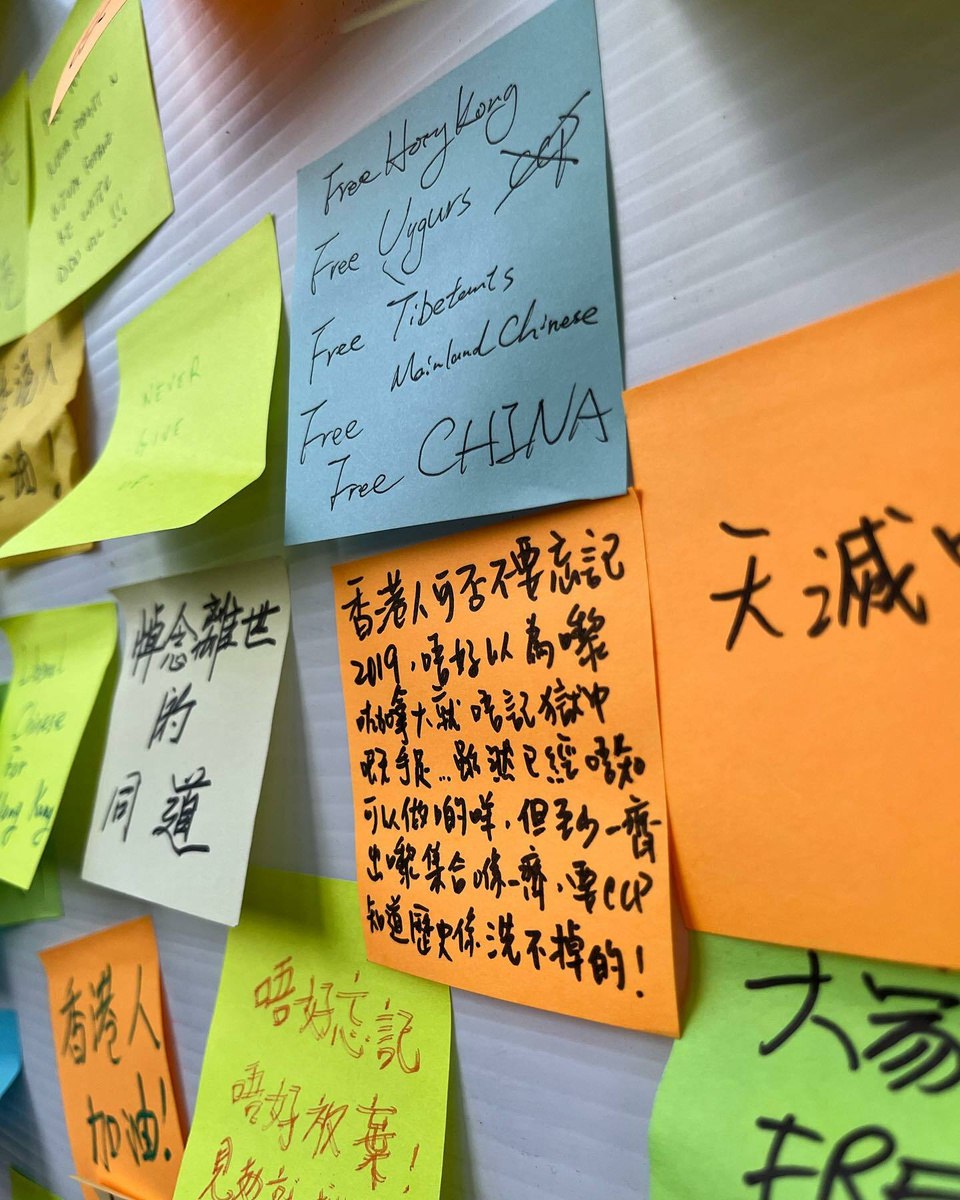 Free Hong Kong
Free Uygurs
CCP
Free Tibetants
Mainland Chinese
Free
Free CHINA
NEVER
GIVE
天滅
香港人可否不要忘記
2019,唔好以為嚟
加拿大就唔記獄中
嘅手足...雖然已經唔知
可以做啲咩,但至少一齊
出嚟集合喺一齊,要CCP
知道歷史係洗不掉的!
悼念離世
的
同道
Chinese
For
Hong Kong
香港人
加油!
唔好忘記
唔好放棄!
大家
FRE